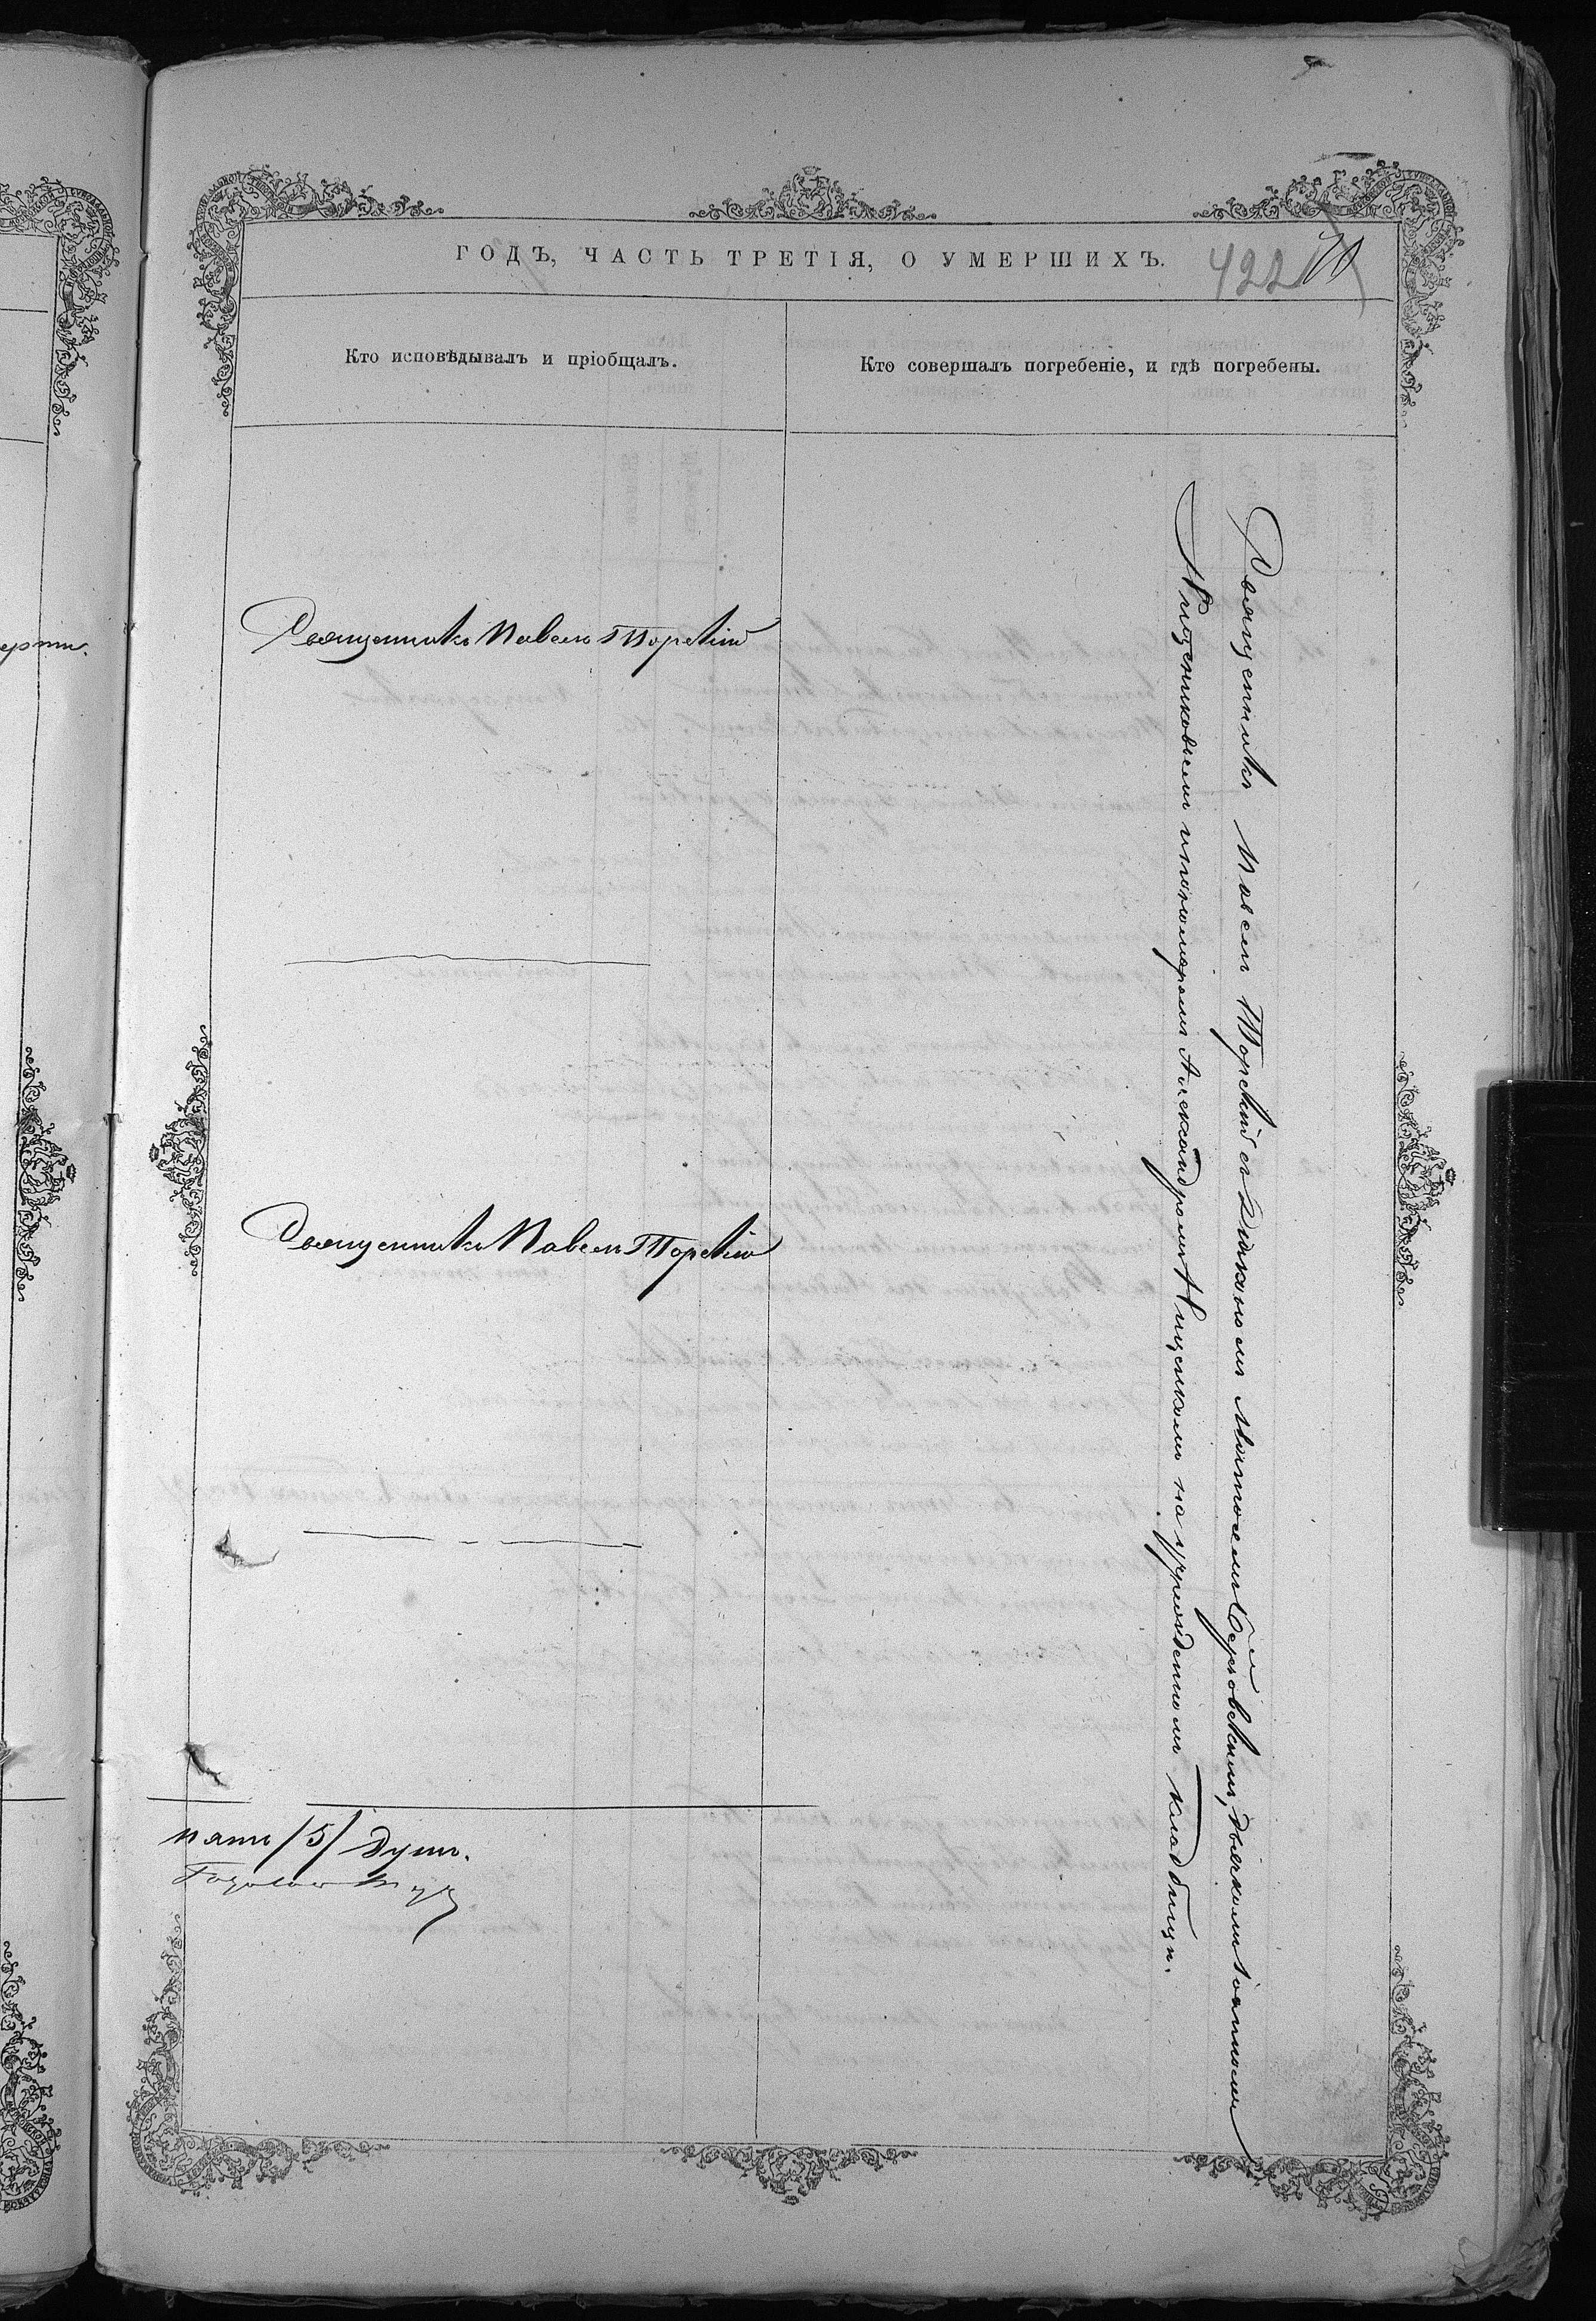 ГОДЪ, ЧАСТЬ ТРЕТІЯ, О УМЕРШИХЪ.
422
Кто исповѣдывалъ и пріобщалъ.
Кто совершалъ погребеніе, и гдѣ погребены.
Священникъ Павелъ Торскій
Священникъ Павелъ Торскій
Священникъ Павелъ Торскій съ діакономъ дьячкомъ Іоанномъ
и пономаремъ Александромъ на кладбищи.
пять /5/ душъ.